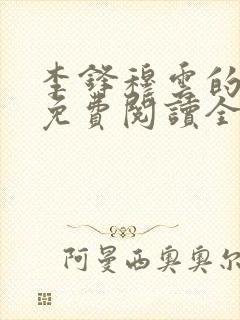 李鋒穆雲的
免費閱讀全
阿曼西奧奧尔